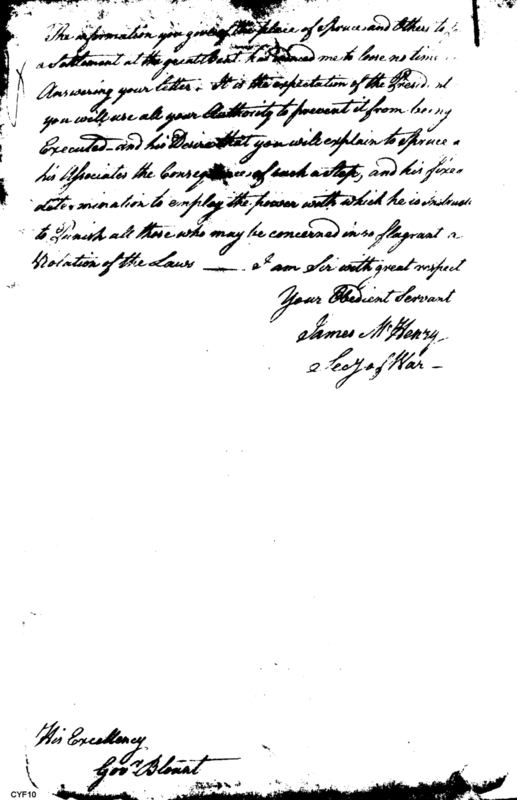 The information you give of the place of Spruce and Others to
a Settlement at the great bent has induced me to lose no time
Answering your letter. It is the expectation of the Presid nt
you will use all your Authority to prevent it from being
Executed and his Desire that you will explain to Spruce
his Associates the Consequences of such a Step, and his fixed
determination to employ the power with which he is
to Punish all those who may be concerned in so flagrant a
Violation of the Laws — I am Sir with great respect
Your Obedient Servant
James McHenry
Secy of War —
His Excellency
Govr Blount
CYF10